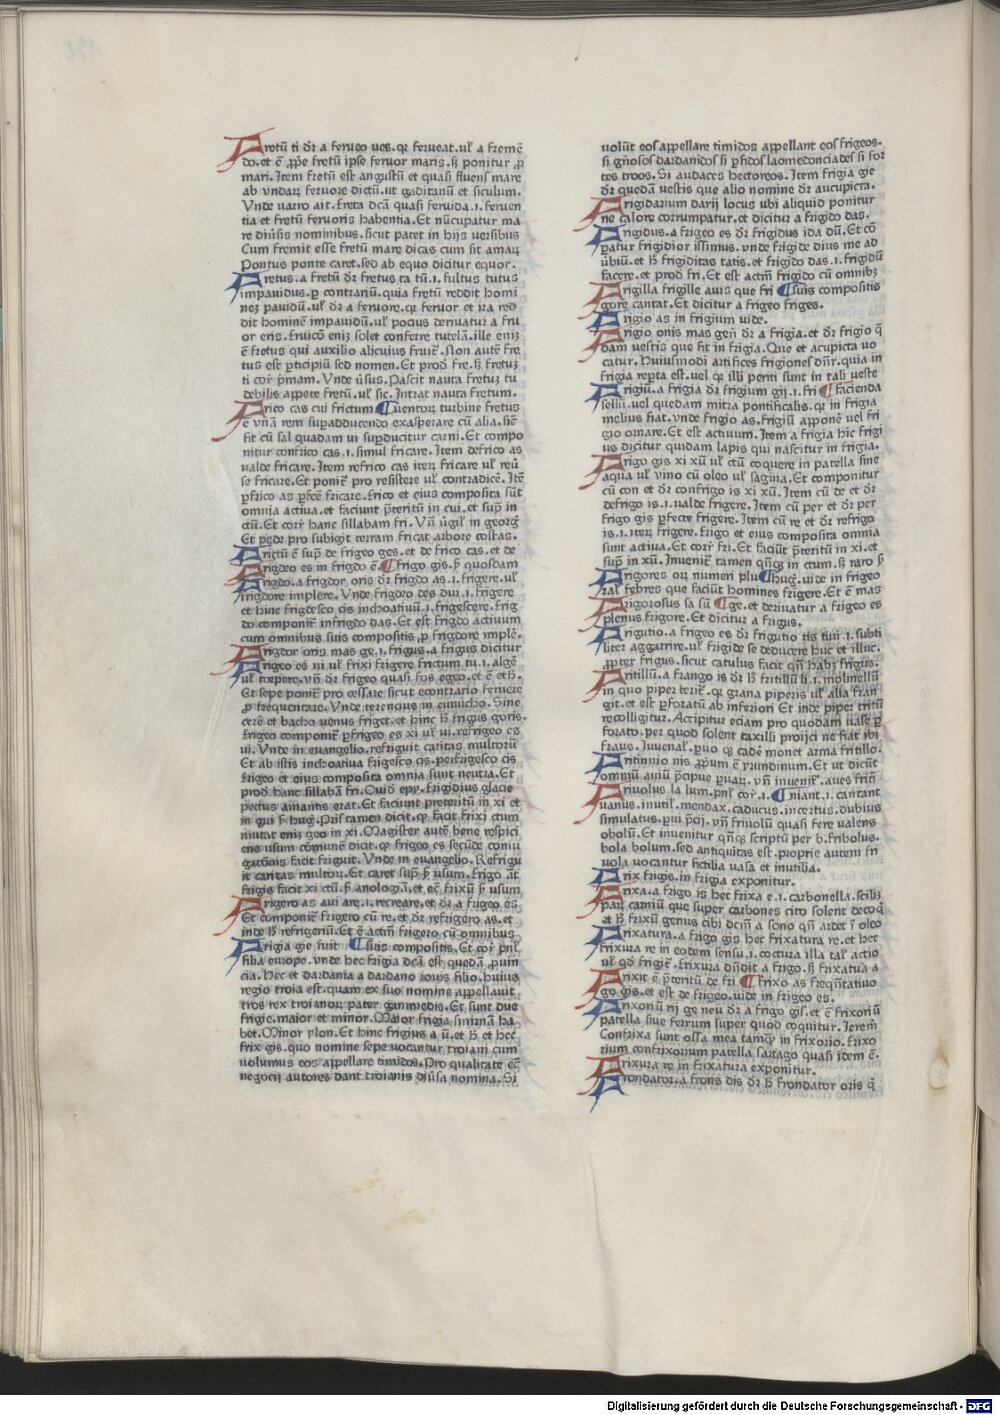 Fretū ti dr̄ a ferueo ues. qr ferueat. ul̓ a fremē
do. et ē ꝓpe fretū ipse feruor maris. h̄ ponitur ꝓ
mari. Item fretū est angustū et quasi fluens mare
ab undaꝝ feruore dictū. ut gaditanū et siculum.
Vnde uarro ait. freta dc̄a quasi feruida .i. feruen
tia et fretū feruoris habentia. Et nūcupatur ma
re diūsis nominibus. sicut patet in hijs uersibus
Cum fremit esse fretū mare dicas cum sit amaꝝ
Pontus ponte caret. sed ab equo dicitur equor.
Fretus. a fretū dr̄ fretus ta tū .i. fultus tutus
impauidus. ꝑ contrariū. quia fretū reddit homi
neꝫ pauidū. ul̓ dr̄ a feruore. qr feruor et ira red
dit hominē impauidū. ul̓ pocius deriuatur a fru
or eris. fruicō eniꝫ solet conferre tutelā. ille eniꝫ
ē fretus qui auxilio alicuius fruit̄. Non autē fre
tus est ꝑticipiū sed nomen. Et prod̄ fre. h̄ fretuꝫ
ti cor̄ pmam. Vnde ūsus. Pascit nauta fretuꝫ tu
debilis appete fretū. ul̓ sic. Intrat nauta fretum.
Frico cas cui frictum ¶ uentoꝝ turbine fretus
ē unā rem supadducendo exasperare cū alia. sic̄
fit cū sal quadam ui supducitur carni. Et compo
nitur confrico cas .i. simul fricare. Item defrico as
ualde fricare. Item refrico cas iteꝝ fricare ul̓ reū
se fricare. Et ponit̄ pro resistere ul̓ contradicē. Itē
ꝑfrico as ꝑfecē fricare. frico et eius composita sūt
omnia actiua. et faciunt pteritū in cui. et sup̄ in
ctū. Et cor̄ hanc sillabam fri. Vn̄ ūgil̓ in georg̓
Et pede pro subigit terram fricat arbore costas.
Frictū ē sup̄ de frigeo ges. et de frico cas. et de
Frigdeo es in frigdo ē. ¶ frigo gis. ꝑ quosdam
Frigdo. a frigdor oris dr̄ frigdo as .i. frigere. ul̓
frigdore implere. Vnde frigdeo des dui .i. frigere
et hinc frigdesco cis inchoatiuū .i. frigescere. frig
do componit̄ infrigdo das. Et est frigdo actiuum
cum omnibus suis compositis ꝓ frigdore implē.
Frigdor oris mas ge .i. frigus. a frigus dicitur
Frigeo es ni ul̓ frixi frigere frictum tu .i. algē
ul̓ torpere. vn̄ dr̄ frigeo quasi fos egeo. et ē eth.
Et sepe ponit̄ pro cessare. sicut econtrario feruere
ꝓ frequentare. Vnde terencius in eunucho. Sine
cerē et bacho uenus friget. et hinc h̄ frigus goris.
frigeo componit̄ ꝑfrigeo es xi ul̓ ui. refrigeo es
ui. Vnde in euangelio. refriguit caritas multorū
Et ab istis inchoatiua frigesco cis. perfrigesco cis
frigeo et eius composita omnia sunt neutra. Et
prod̄ hanc sillabā fri. Ouid epy. frigidius glacie
pectus amantis erat. Et faciunt preteritū in xi et
in gui ꝑ hug. Priscianen dicit. qꝫ facit frixi ctum
mutat eniꝫ geo in xi. Magister autē bene respici
ens usum comunē dicit. qꝫ frigeo es secūde coniu
gacōnis facit friguit. Vnde in euangelio. Refrigu
it caritas multoꝝ. Et caret sup̄ ꝑ usum. frigo āt
frigis facit xi ctū. ꝑ anologiā. et ec̄ frixū ꝑ usum
Frigero as aui are .i. recreare. et dr̄ a frigeo es
Et componit̄ frigero cū re. et dr̄ refrigero as. et
inde h̄ refrigeriū. Et ē actm̄ frigero cū omnibus
Frigia gie fuit ¶ suis compositis. Et cor̄ pnl̓
filia europe. unde hec frigia dc̄a est quedā ꝓuin
cia. Hec et dardania a dardano iouis filio. huius
regio troia est. quam ex suo nomine appellauit
tros rex troianoꝝ pater ganimedis. Et sunt due
frigie. maior et minor. Maior frigia smirnā ha
bet. Minor ylon. Et hinc frigius a ū. et h̄ et hec
frix gis. quo nomine sepe uocantur troiani cum
uolumus eos appellare timidos. Pro qualitate ec̄
negocij autores dant troianis diūsa nomina. Si
uolūt eos appellare timidos appellant eos frigeos.
si gn̄osos dardanidos si ꝑfidos laomedonciades si for
tes troos. Si audaces hectoreos. Item frigia gie
dr̄ quedā uestis que alio nomine dr̄ aucupicta.
Frigidarium darij locus ubi aliquid ponitur
ne calore corrumpatur. et dicitur a frigido das.
Frigidus. a frigeo es dr̄ frigidus ida dū. Et cō
patur frigidior issimus. unde frigide dius me ad
ūbiū. et h̄ frigiditas tatis. et frigido das .i. frigidū
facere. et prod̄ fri. Et est actm̄ frigido cū omnibꝫ
Frigilla frigille auis que fri ¶ suis compositis
gore cantat. Et dicitur a frigeo friges.
Frigio as in frigium uide.
Frigio onis mas gen̄ dr̄ a frigia. et dr̄ frigio q̄
dam uestis que fit in frigia. Que et acupicta uo
catur. Huiusmodi artifices frigiones dn̄r. quia in
frigia rep̄ta est. uel qr illi periti sunt in tali ueste
Frigiū. a frigia dr̄ frigium gij .i. fri ¶ facienda
sellū. uel quedam mitra pontificalis. qr in frigia
melius fiat. unde frigio as. frigiū appōnē uel fri
gio ornare. Et est actiuum. Item a frigia hic frigi
us dicitur quidam lapis qui nascitur in frigia.
Frigo gis xi xū ul̓ ctū coquere in patella sine
aqua ul̓ vino cū oleo ul̓ sagina. Et componitur
cū con et dr̄ confrigo is xi xū. Item cū de et dr̄
defrigo is .i. ualde frigere. Item cū per et dr̄ per
frigo gis ꝑfecte frigere. Item cū re et dr̄ refrigo
is .i. iteꝝ frigere. frigo et eius composita omnia
sunt actiua. Et cor̄ fri. Et faciūt pteritū in xi. et
sup̄ in xū. Inuenit̄ tamen qn̄qꝫ in ctum. h̄ raro ꝑ
Frigores oꝝ numeri plu ¶ hug. uide in frigeo
ral̓ febres que faciūt homines frigere. Et ē mas
Frigorosus sa sū ¶ ge. et deriuatur a frigeo es
plenus frigore. Et dicitur a frigus.
Frigutio. a frigeo es dr̄ frigutio tis tiui .i. subti
liter aggarrire. ul̓ frigide se deducere huc et illuc.
ꝓpter frigus. sicut catulus facit qn̄ habꝫ frigus.
Fritillū. a frango is dr̄ h̄ fritillū li .i. molinellū
in quo piper terit̄. qr grana piperis ul̓ alia fran
git. et est ꝑforatū ab inferiori Et inde piper tritū
recolligitur. Accipitur eciam pro quodam uase ꝑ
forato. per quod solent taxilli proijci ne fiat ibi
fraus. Iuuenal̓. ꝑuo qꝫ eadē monet arma fritillo.
Fritinnio nis ꝓpum ē yrundinum. Et ut dicūt
omniū auiū p̄cipue ꝑuaꝝ. vn̄ inuenit̄. aues frit̄i
Friuolus la lum. pnl̓ cor̄ .i. ¶ niant .i. cantant
uanus. inutil̓. mendax. caducus. incertus. dubius
simulatus. ꝑui p̄cij. vn̄ friuolū quasi fere valens
obolū. Et inuenitur qn̄qꝫ scriptū per b. fribolus.
bola bolum. sed antiquitas est. proprie autem fri
uola uocantur fictilia uasa et inutilia.
Frix frigis. in frigia exponitur.
Frixa. a frigo is hec frixa e .i. carbonella. scilꝫ
parꝝ carniū que super carbones cito solent decoq̄
et h̄ frixū genus cibi dc̄m a sono qn̄ ardet ī oleo
Frixatura. a frigo gis hec frixatura re. et hec
frixura re in eodem sensu .i. coctura illa tal̓ actio
ul̓ qd̓ frigit̄. frixura dn̄dit a frigo. h̄ frixatura a
Frixit ē pteritū de fri ¶ frixo as freqn̄tatiuo
go gis. et est de frigeo. uide in frigeo es.
Frixoriū rij ge neu dr̄ a frigo gis. et ē frixoriū
patella siue ferrum super quod coquitur. Jerem̄
Confrixa sunt ossa mea tamqꝫ in frixorio. frixo
rium confrixorium patella sartago quasi idem ē.
Frixura re in frixatura exponitur.
Frondator. a frons dis dr̄ h̄ frondator oris q̄
Digitalisierung gefördert durch die Deutsche Forschungsgemeinschaft - DFG